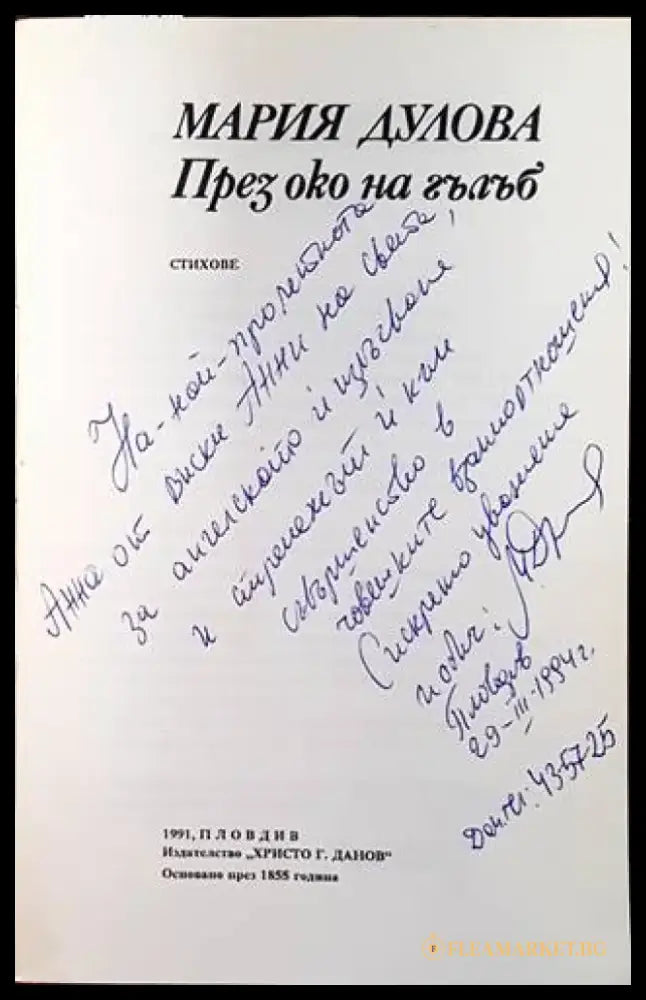 МАРИЯ ДУЛОВА
През око на гълъб
СТИХОВЕ
На-най-пролетната
Анна от всички Анни на света,
за ангелското ѝ излъчване
и стремежът ѝ към
съвършенство в
човешките взаимоотношения!
С искрено уважение
и обич:
Пловдив
29-III-1994г.
Дом.тел: 435725
1991, ПЛОВДИВ
Издателство „ХРИСТО Г. ДАНОВ"
Основано през 1855 година
FLEAMARKET.BG